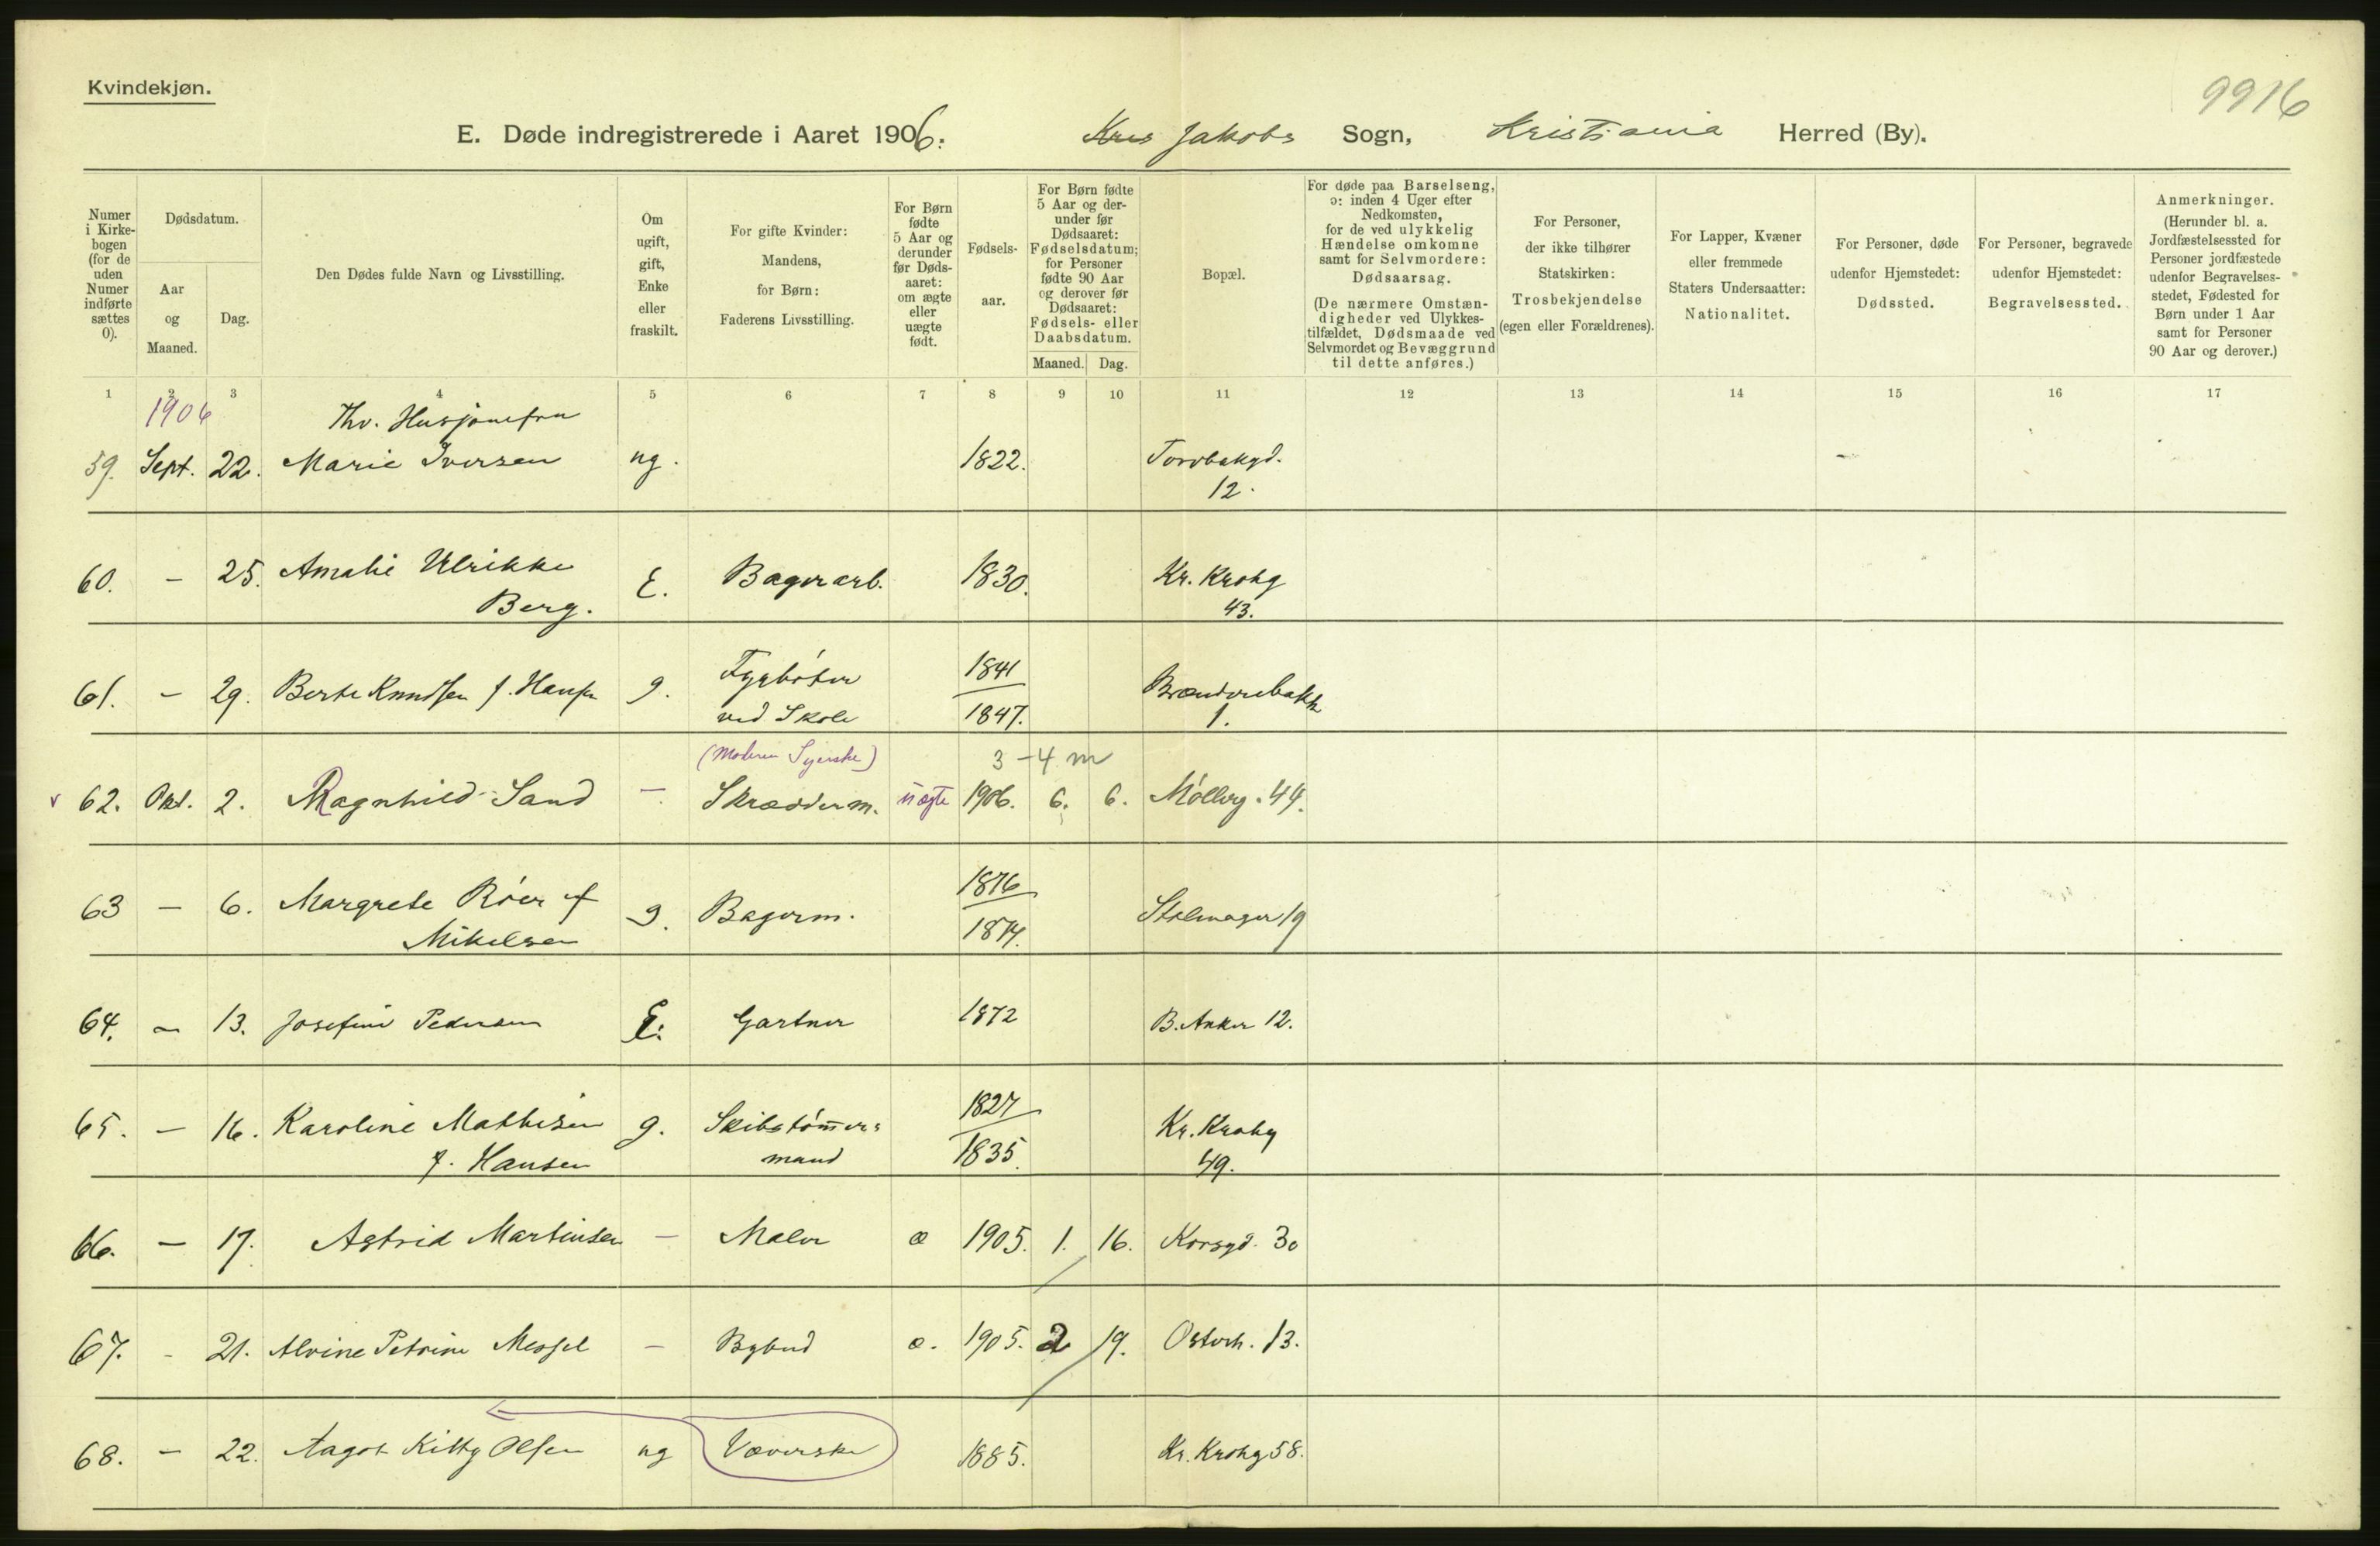 Kvindekjøn.
9916
E. Døde indregistrerede i Aaret 1906. Jakobs Sogn, Kristiania Herred (By).
Numer i Kirkebogen (for de uden Numer indførte sættes 0).
Dødsdatum.
Aar og Maaned.
Dag.
Den Dødes fulde Navn og Livsstilling.
Om ugift, gift, Enke eller fraskilt.
For gifte Kvinder: Mandens, for Børn: Faderens Livsstilling.
For Børn fødte 5 Aar og derunder før Dødsaaret: om ægte eller uægte født.
Fødselsaar.
For Børn fødte 5 Aar og derunder før Dødsaaret: Fødselsdatum; for Personer fødte 90 Aar og derover før Dødsaaret: Fødsels- eller Daabsdatum.
Maaned. Dag.
Bopæl.
For døde paa Barselseng, ɔ: inden 4 Uger efter Nedkomsten, for de ved ulykkelig Hændelse omkomne samt for Selvmordere: Dødsaarsag.
(De nærmere Omstændigheder ved Ulykkestilfældet, Dødsmaade ved Selvmordet og Bevæggrund til dette anføres.)
For Personer, der ikke tilhører Statskirken: Trosbekjendelse (egen eller Forældrenes).
For Lapper, Kvæner eller fremmede Staters Undersaatter: Nationalitet.
For Personer, døde udenfor Hjemstedet: Dødssted.
For Personer, begravede udenfor Hjemstedet: Begravelsessted.
Anmerkninger.
(Herunder bl. a. Jordfæstelsessted for Personer jordfæstede udenfor Begravelsesstedet, Fødested for Børn under 1 Aar samt for Personer 90 Aar og derover.)
1 2 3 4 5 6 7 8 9 10 11 12 13 14 15 16 17
1906
59. Sept. 22. Marie Iversen ug. 1822. Torvbakgd.
12.
60. – 25. Amalie Ulrikke E. Bagerarb. 1830. Kr. Krohg
Berg. 43.
61. – 29. Berte Knudsen f. Hansen g. Fyrbøter 1841
ved Skole 1847. 1.
(Moderen Syerske) 3-4 m
62. Okt. 2. Ragnhild Sand – Skrædderm. uægte 1906. 6. 6. Møllerg. 44.
63 – 6. Margrete Röer f g. Bagerm. 1876 Stolmager 19
Mikelsen 1874.
64. – 13. Josefine Pedersen E. Gartner 1872 B. Anker 12.
65. – 16. Karoline Mathisen g. Skibstømmer- 1827 Kr. Krohg
f. Hansen mand 1835. 49.
66. – 17. Astrid Martinsen – Maler æ 1905. 1. 16. Korsgd. 30
67. – 21. Alvine Petrine Messel – Bybud æ. 1905. 2 19. Osterh. 13.
68. – 22. Aagot Kitty Olsen ug Væverske 1885. Kr. Krohg 58.